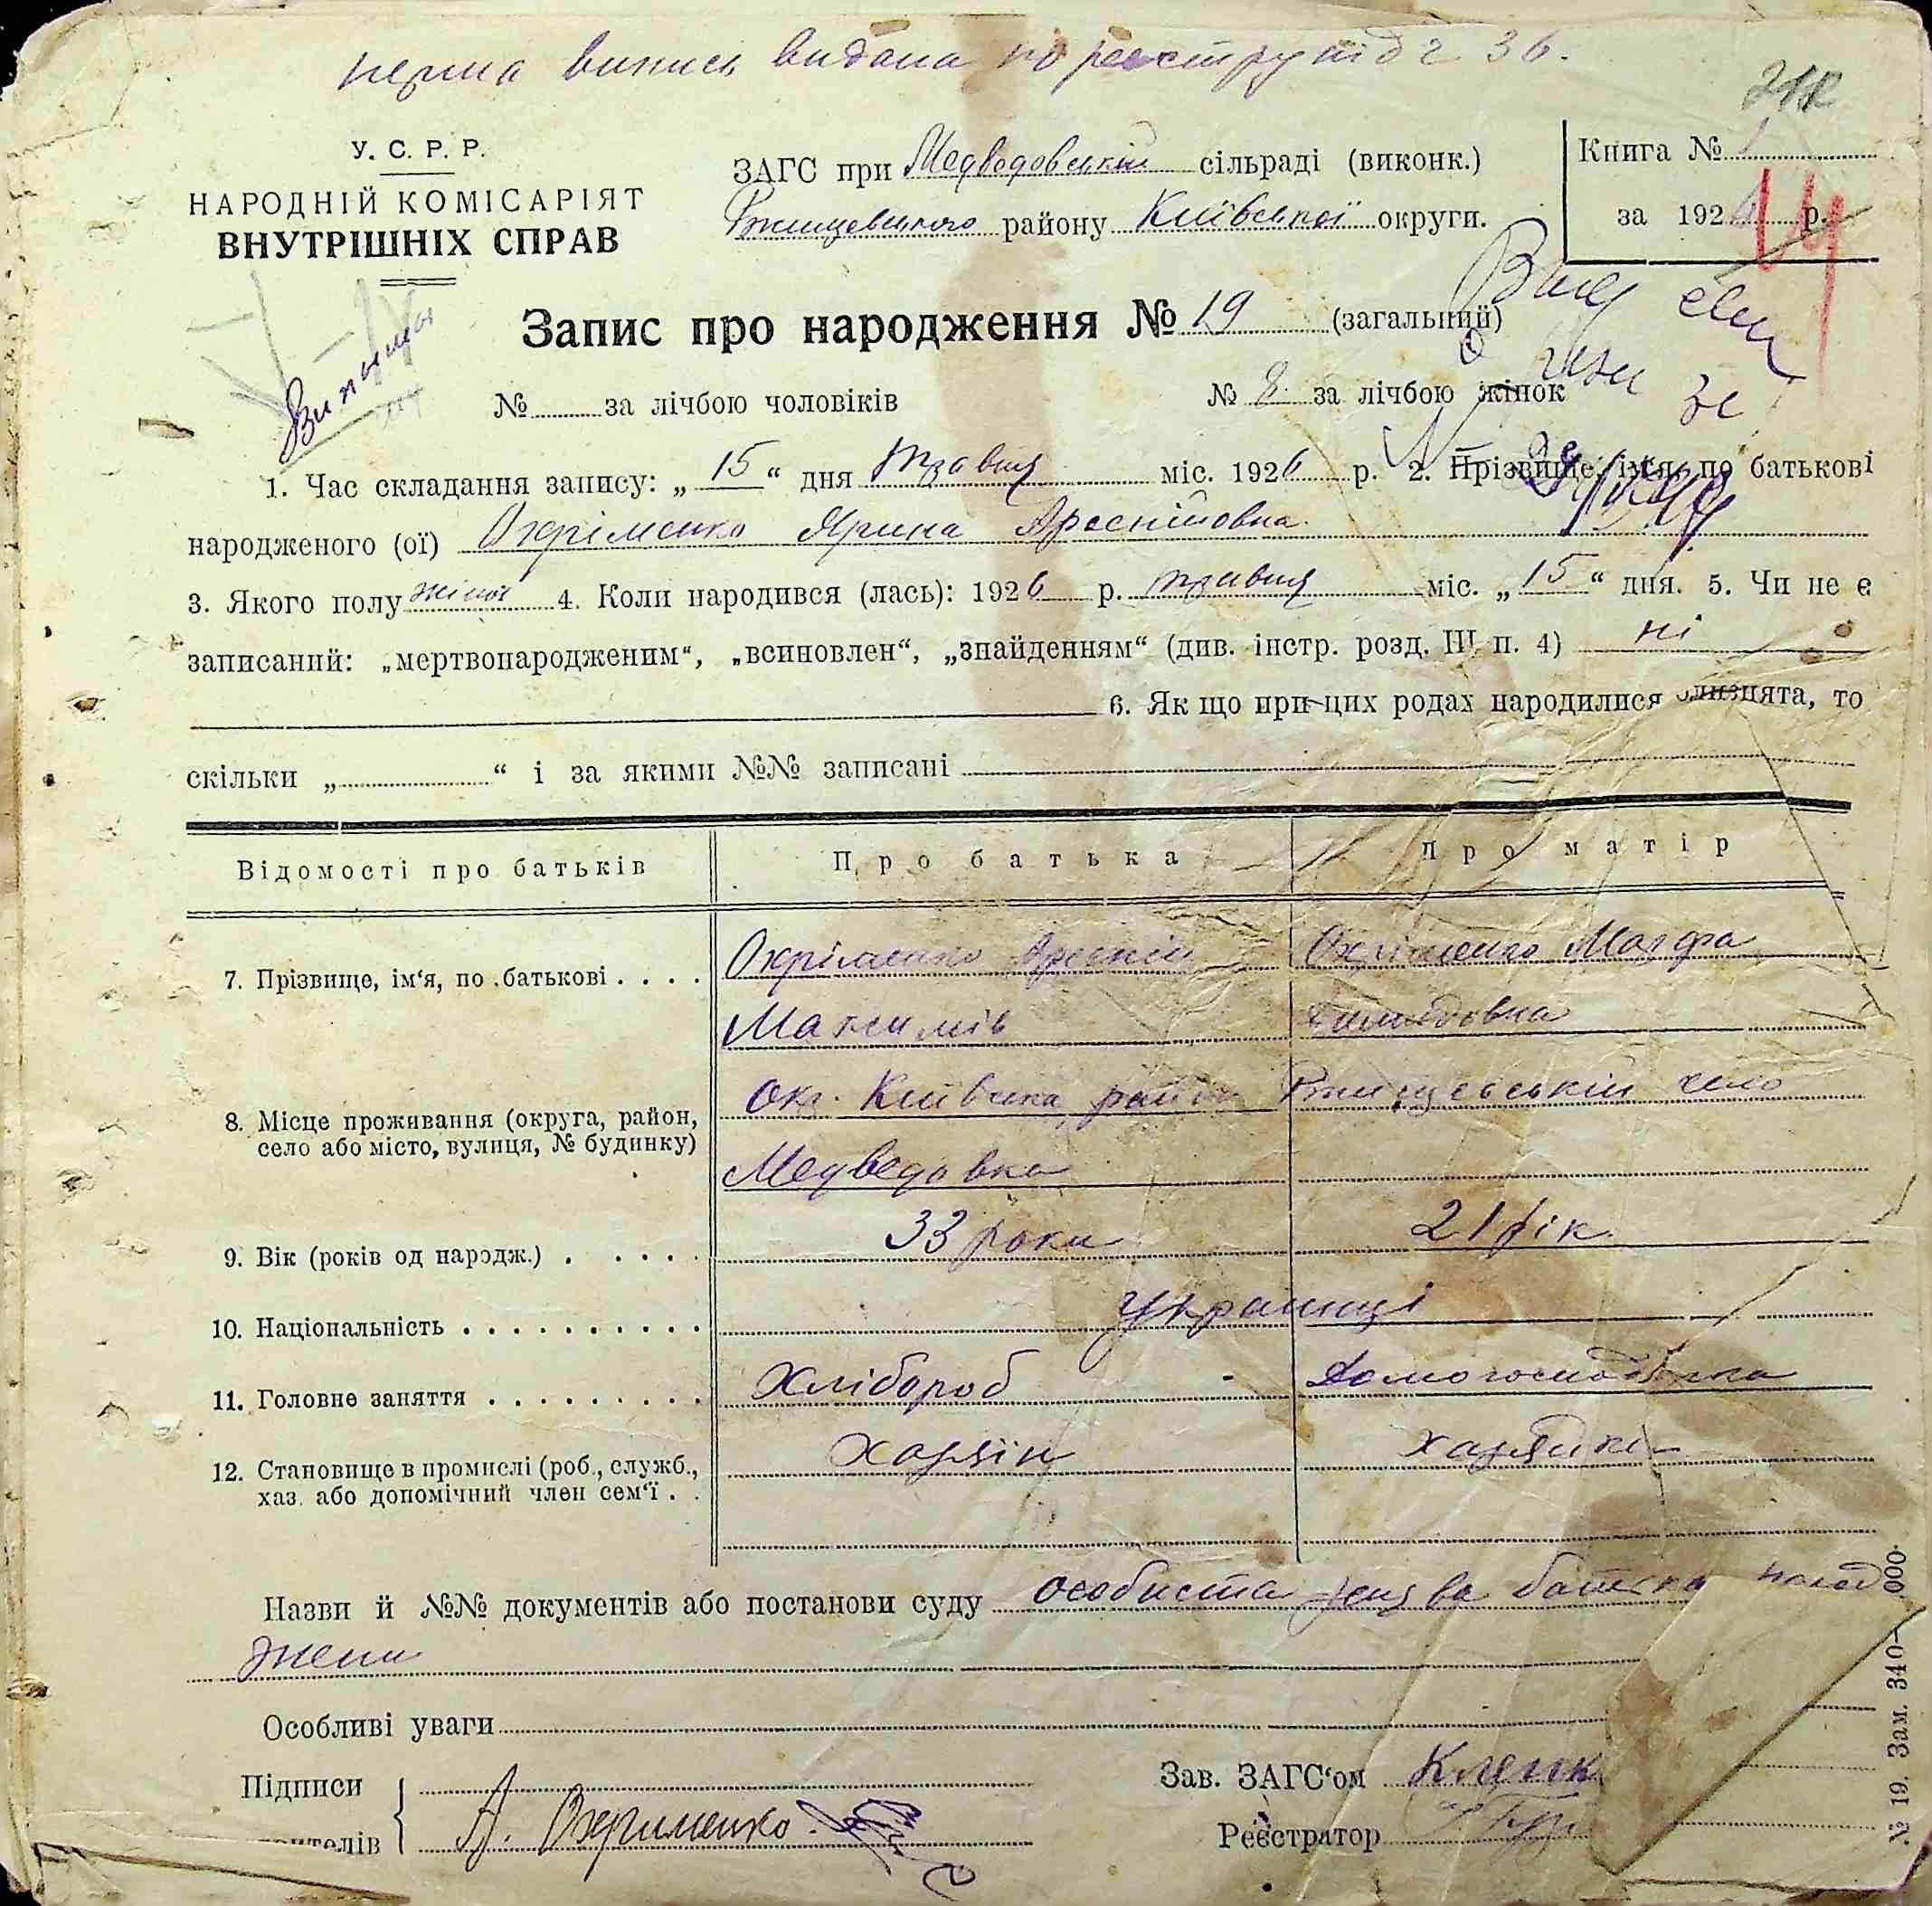 перша випись видана по реєстру під ч 36.
У. С. Р. Р.
НАРОДНІЙ КОМІСАРІЯТ
ВНУТРІШНІХ СПРАВ
ЗАГС при Медведовській сільраді (виконк.)
Ржищевського району Київської округи.
Книга № 1
за 1926 р.
14
Виписи
Запис про народження № 19 (загальний)
№ за лічбою чоловіків № 8 за лічбою жінок
1. Час складання запису: „ 15 “ дня травня міс. 1926 р. 2. Прізвище, імя, по батькові
народженого (ої) Охріменко Ярина Арсентіовна.
3. Якого полу жіноч 4. Коли народився (лась): 1926 р. травня міс. „ 15 “ дня. 5. Чи не є
записаний: „мертвонародженим“, „всиновлен“, „знайденням“ (див. інстр. розд. III п. 4) ні
6. Як що при цих родах народилися близнята, то
скільки „ “ і за якими №№ записані
Відомості про батьків Про батька Про матір
7. Прізвище, ім‘я, по батькові . . . . Охріменко Арсентій Охріменко Марфа
Максимів
8. Місце проживання (округа, район, Окр. Київська, район Ржищевській село
село або місто, вулиця, № будинку) Медведовка
9. Вік (років од народж.) . . . . . 33 роки 21 рік
10. Національність . . . . . . . . . . Українці
11. Головне заняття . . . . . . . . . Хлібороб - Домогосподарка
12. Становище в промислі (роб., служб., Хазяїн хазяйка
хаз. або допомічний член сем‘ї . .
Назви й №№ документів або постанови суду особиста заява батька
жени
Особливі уваги
Підписи
А. Охрименко
Зав. ЗАГС‘ом
Реєстратор
№ 19. Зам. 340— 000.